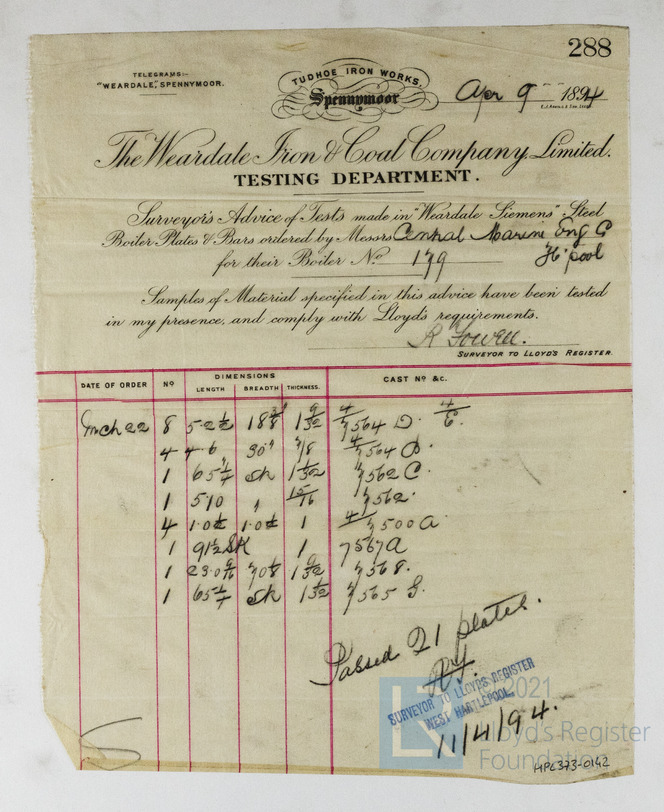 288
TELEGRAMS:-
"WEARDALE", SPENNYMOOR.
TUDHOE IRON WORKS,
Spennymoor
Apr 9 1894
The Weardale Iron & Coal Company, Limited.
TESTING DEPARTMENT.
Surveyor's Advice of Tests made in "Weardale Siemens" Steel
Boiler Plates & Bars ordered by Messrs Central Marine Eng Co
for their Boiler No 179 H'pool
Samples of Material specified in this advice have been tested
in my presence, and comply with Lloyd's requirements.
R Fowell.
SURVEYOR TO LLOYD'S REGISTER.
DATE OF ORDER No DIMENSIONS CAST No &c.
LENGTH BREADTH THICKNESS.
Mch 22 8 5-2 1/2 18 3/8 1 9/32 4/7564 D. 4/E.
4 4-6 30" 7/8 4/7564 B.
1 65 Sk 1 1/32 7562 C.
1 510 " 15/16 7562.
4 1·0 1·0 1 4/7500 A
1 91 1/2 SK 1 7567A
1 23·0 9/16 70 1/8 1 9/32 7568.
1 65 Sk 1 1/32 7565 G.
Passed 21 plates.
RF.
SURVEYOR TO LLOYDS REGISTER
WEST HARTLEPOOL.
11/4/94.
2021
Lloyd's Register
Foundation
HPL373-0142